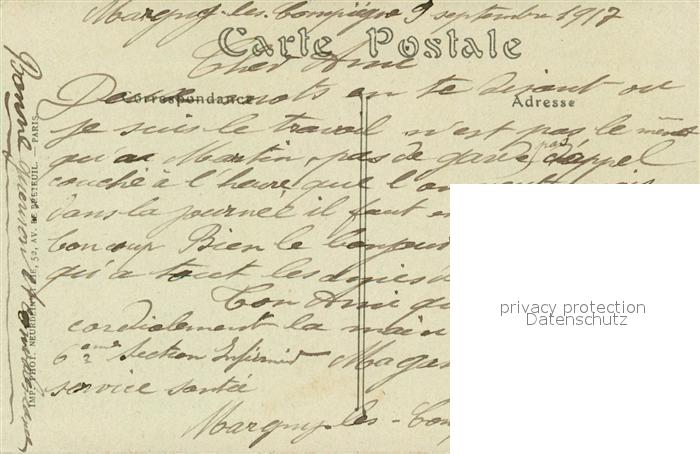 Margny les Compiègne 9 septembre 1917
Carte Postale
Cher Ami
Correspondance
Adresse
Deux mots en te disant ou
je suis le travail n'est pas le même
qu'au Martin, pas de garde pas d'appel
couché à l'heure que l'on
dans la journée il faut en
boncoup Bien le bonjour
qu'a tout les amis
Ton Ami qui
cordialement la main
6eme Section Infirmier Magas
service santée
Margny-les-Com
Bonne
IMP. PHOT. NEURDEIN ET CIE, 52, AV. DE BRETEUIL. — PARIS
privacy protection
Datenschutz